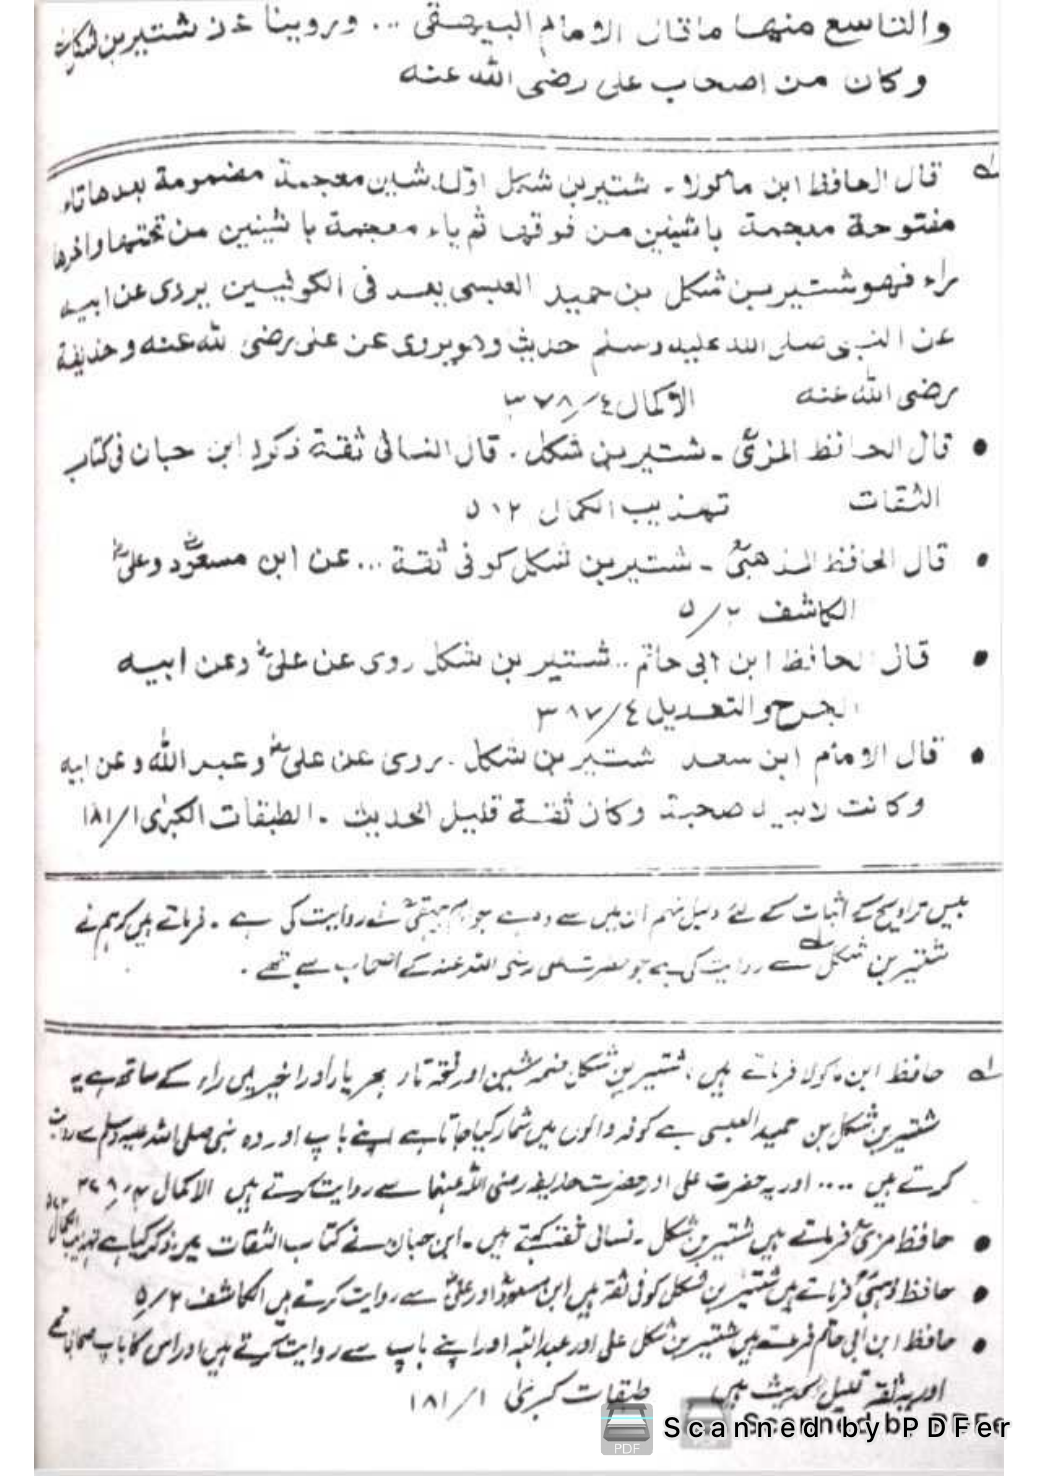 والتاسع منها ما قال الامام البيهقى ... وروينا عن شتير بن شكل
وكان من اصحاب على رضى الله عنه
لـه قال الحافظ ابن ماكولا - شتير بن شكل اوله شين معجمة مضمومة بعدها تاء
مفتوحة معجمة باثنين من فوقها ثم ياء معجمة باثنين من تحتها واخرها
راء فهو شتير بن شكل بن حميد العبسى يعد فى الكوفيين يروى عن ابيه
عن النبى صلى الله عليه وسلم حديث وهو يروى عن على رضى الله عنه وحذيفة
رضى الله عنه الاكمال ٤/٣٧٨
• قال الحافظ المزىؒ - شتير بن شكل . قال النسائى ثقة ذكره ابن حبان فى كتاب
الثقات تهذيب الكمال ٥١٢
• قال الحافظ الذهبىؒ - شتير بن شكل كوفى ثقة ... عن ابن مسعودؓ وعلىؓ
الكاشف ٢/٥
• قال الحافظ ابن ابى حاتم .. شتير بن شكل روى عن علىؓ وعن ابيه
الجرح والتعديل ٤/٣٨٧
• قال الامام ابن سعد شتير بن شكل . روى عن علىؓ وعبد الله وعن ابيه
وكانت لابيه صحبة وكان ثقة قليل الحديث . الطبقات الكبرى ١٨١/١
بیس تراویح کے اثبات کے لئے دلیل نہم ان میں سے وہ ہے جو امام بیہقیؒ نے روایت کی ہے ۔ فرماتے ہیں کہ ہم نے
شتیر بن شکل لہ سے روایت کی ہے جو حضرت علی رضی اللہ عنہ کے اصحاب سے تھے ۔
لـه حافظ ابن ماکولا فرماتے ہیں ، شتیر بن شکل ضمہ شین اور فتحہ تاء پھر یاء اور اخیر میں راء کے ساتھ ہے یہ
شتیر بن شکل بن حمید العبسی ہے کوفہ والوں میں شمار کیا جاتا ہے اپنے باپ اور وہ نبی صلی اللہ علیہ وسلم سے روایت
کرتے ہیں .... اور یہ حضرت علی اور حضرت حذیفہ رضی اللہ عنہما سے روایت کرتے ہیں الاکمال
• حافظ مزیؒ فرماتے ہیں شتیر بن شکل ۔ نسائی ثقہ کہتے ہیں ۔ ابن حبان نے کتاب الثقات میں ذکر کیا ہے تہذیب الکمال
• حافظ ذہبیؒ فرماتے ہیں شتیر بن شکل کوفی ثقہ ہیں ابن مسعودؓ اور علیؓ سے روایت کرتے ہیں الکاشف ٢/٥
• حافظ ابن ابی حاتم فرماتے ہیں شتیر بن شکل علی اور عبد اللہ اور اپنے باپ سے روایت کرتے ہیں اور اس کا باپ صحابی تھے
اور یہ ثقہ قلیل الحدیث ہیں طبقات کبریٰ ١٨١/١
Scanned by PDFer